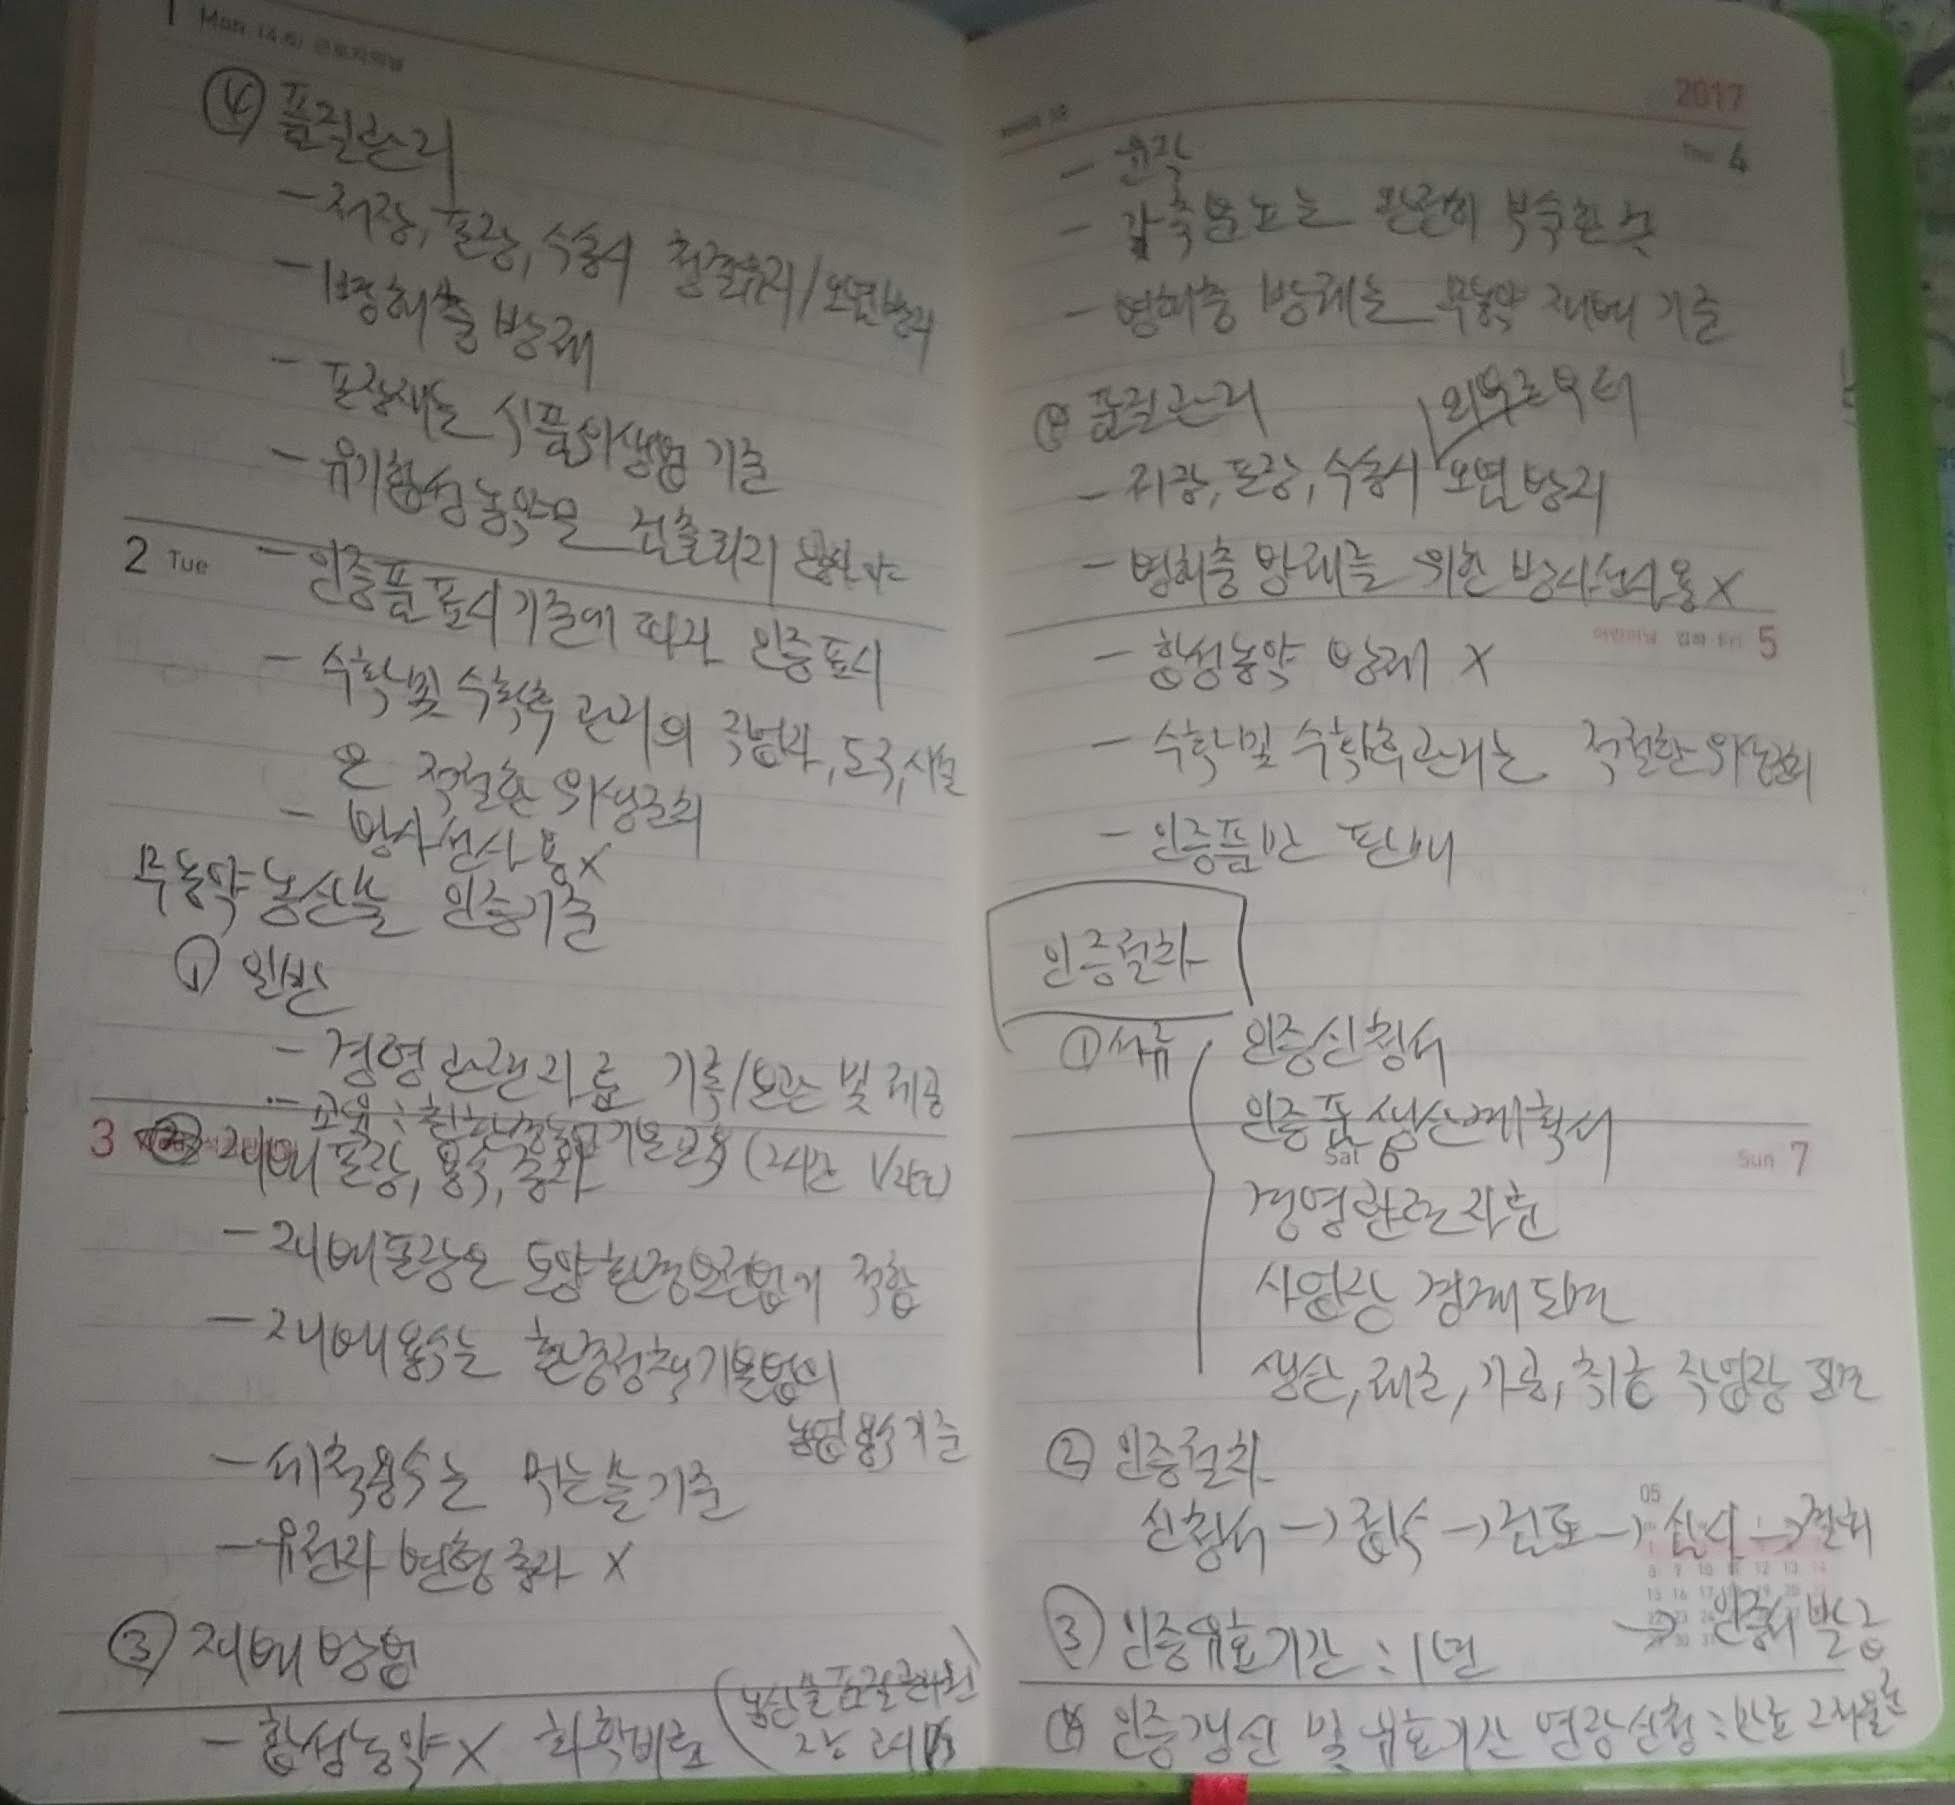 1 Mon
④ 품질관리
- 저장, 포장, 수송시 청결유지/오염방지
- 병해충 방제
- 포장재는 식품위생법 기준
- 유기합성농약은 검출되지
2 Tue
- 인증품 표시기준에 따라 인증표시
- 수확 및 수확후 관리의 작업자, 도구, 시설
은 적절한 위생조치
- 방사선사용 X
무농약 농산물 인증기준
① 일반
- 경영관련자료 기록/보관 및 제공
- 교육: 친환경농업기본교육 (2시간 1/2년)
3 ② 재배포장, 용수, 종자
- 재배포장은 토양환경보전법에 적합
- 재배용수는 환경정책기본법의
농업용수기준
- 세척용수는 먹는물기준
- 유전자 변형종자 X
③ 재배방법
- 합성농약 X 화학비료 (농산물품질관리원
2017
Thu 4
- 윤작
- 가축분뇨는 완전히 부숙한 것
- 병해충 방제는 무농약 재배 기준
④ 품질관리
외부로부터
- 저장, 포장, 수송시 오염방지
- 병해충방제를 위한 방사선사용 X
어린이날 Fri 5
- 합성농약 방제 X
- 수확 및 수확후관리는 적절한 위생조치
- 인증품만 판매
인증절차
① 서류 인증신청서
인증품생산계획서
Sat 6
Sun 7
경영관련자료
사업장 경계도면
생산, 제조, 가공, 취급 작업장 도면
② 인증절차
05
신청서 → 접수 → 검토 → 심사 →
→ 인증서 발급
③ 인증유효기간 : 1년
④ 인증갱신 및 유효기간 연장신청 : 만료 2개월전